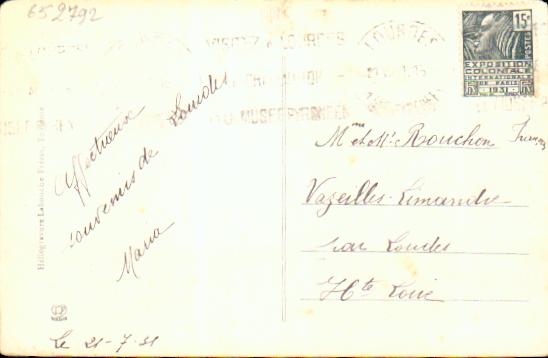 652792
LOURDES
15c
POSTES
EXPOSITION
COLONIALE
INTERNATIONALE
DE PARIS
1931
Affectueux
souvenirs de Lourdes
Maria
Le 21-7-31
Mme et Mr. Rouchon François
Vazeilles-Limandre
par Loudes
Hte Loire
Héliogravure Labouche Frères, Toulouse